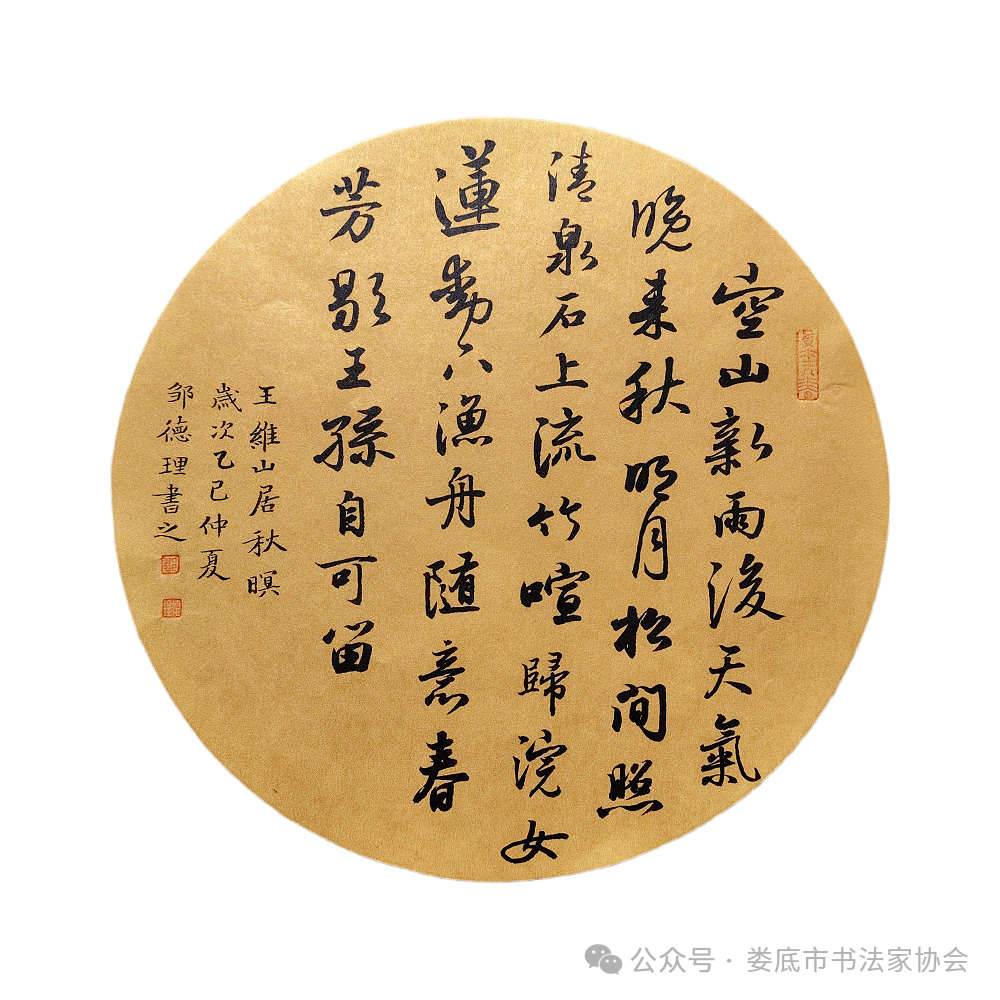 空山新雨後天氣
晚来秋明月松间照
清泉石上流竹喧歸浣女
蓮動下漁舟随意春
芳歇王孫自可留
王維山居秋暝
歲次乙巳仲夏
邹德理書之
公众号·娄底市书法家协会